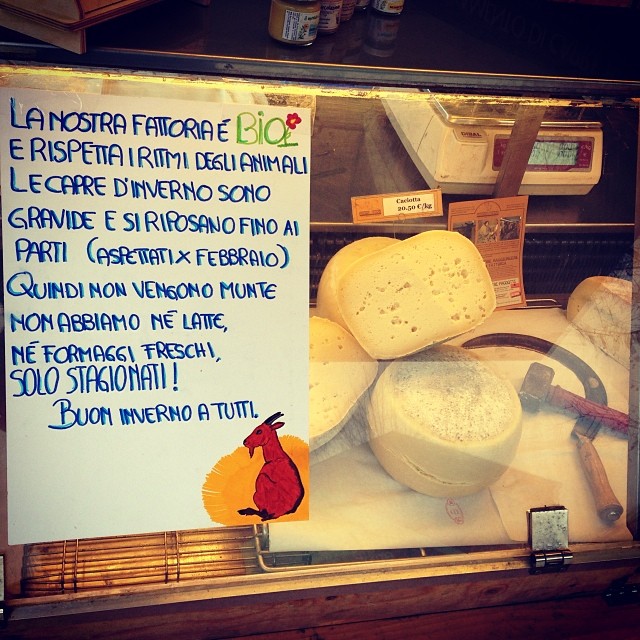 LA NOSTRA FATTORIA É BIO
E RISPETTA I RITMI DEGLI ANIMALI
LE CAPRE D'INVERNO SONO
GRAVIDE E SI RIPOSANO FINO AI
PARTI (ASPETTATI X FEBBRAIO)
QUINDI NON VENGONO MUNTE
NON ABBIAMO NÉ LATTE,
NÉ FORMAGGI FRESCHI,
SOLO STAGIONATI!
BUON INVERNO A TUTTI.
Caciotta
20.50 €/kg